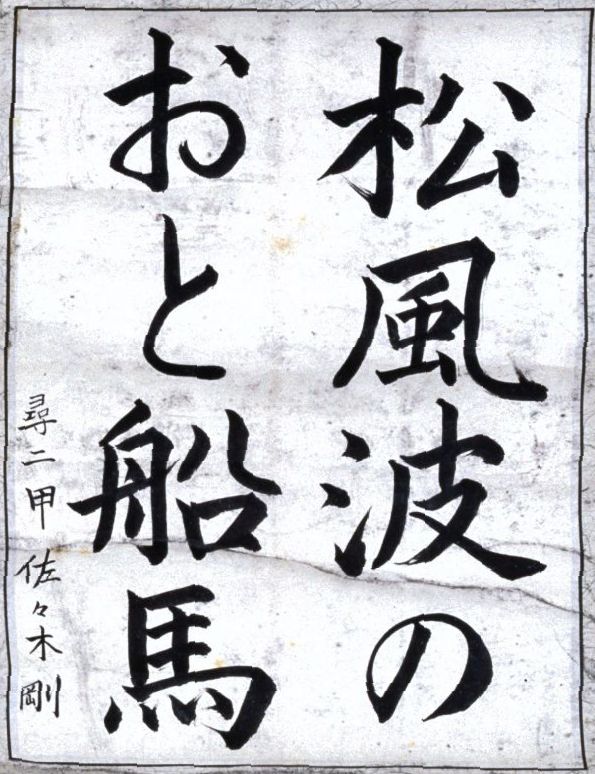 松風波の
おと船馬
尋二甲佐々木剛